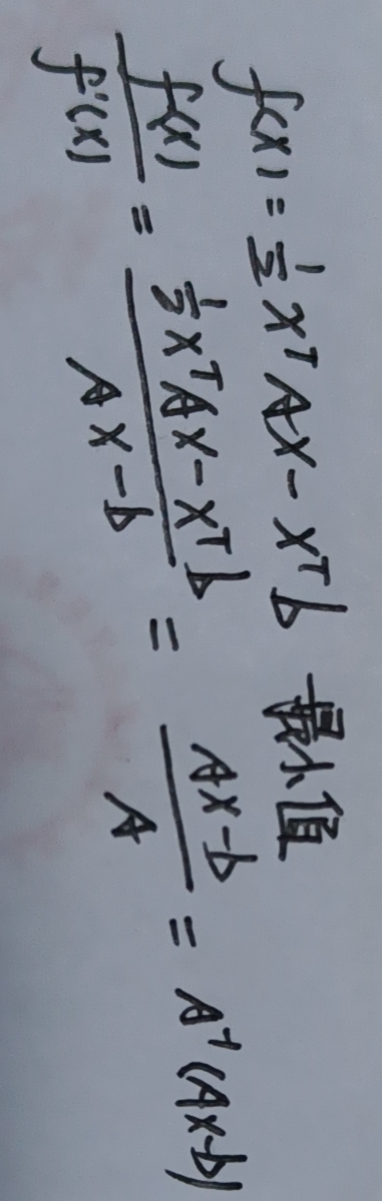 f(x) = 1/2 xᵀAx - xᵀb 最小值
f(x)/f'(x) = (1/2 xᵀAx - xᵀb)/(Ax-b) = (Ax-b)/A = A⁻¹(Ax-b)